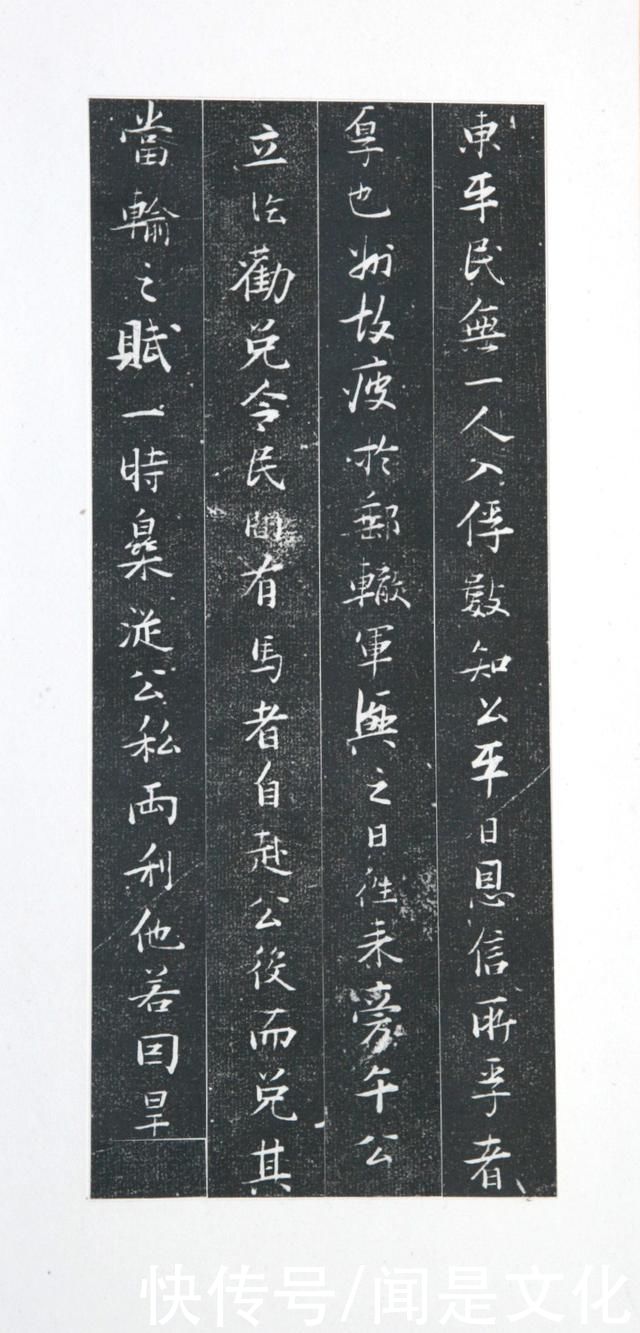 東平民無一人入俘數知公平日恩信所孚者
厚也州故疲於郵轍軍興之日往来旁午公
立法勸兌令民間有馬者自赴公役而兌其
當輸之賦一時樂從公私両利他若因旱
快传号/闻是文化